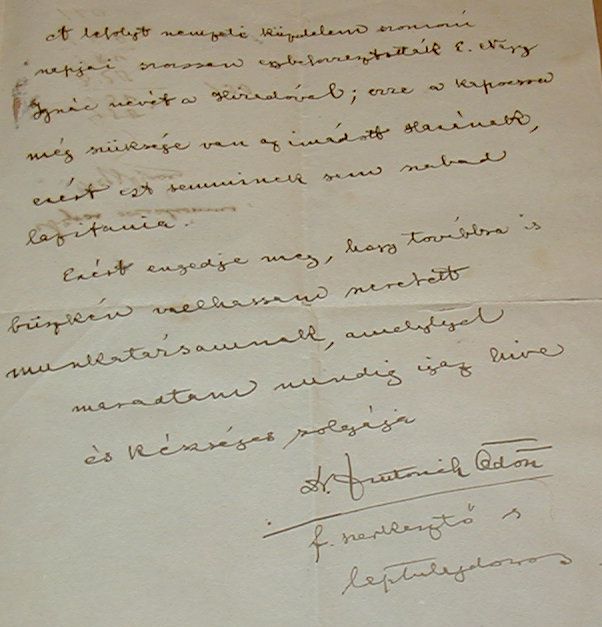 A lefolyt nemzeti küzdelem szomorú
napjai szorosan egybeforrasztották E. Nagy
Ignác nevét a Híradóval; erre a kapocsra
még szüksége van az imádott Hazának,
ezért ezt semminek sem szabad
lazítania.
Ezért engedje meg, hogy továbbra is
büszkén vallhassam szeretett
munkatársamnak, amelylyel
maradtam mindig igaz híve
és készséges szolgája
Dr. Ödön
f. szerkesztő s
laptulajdonos